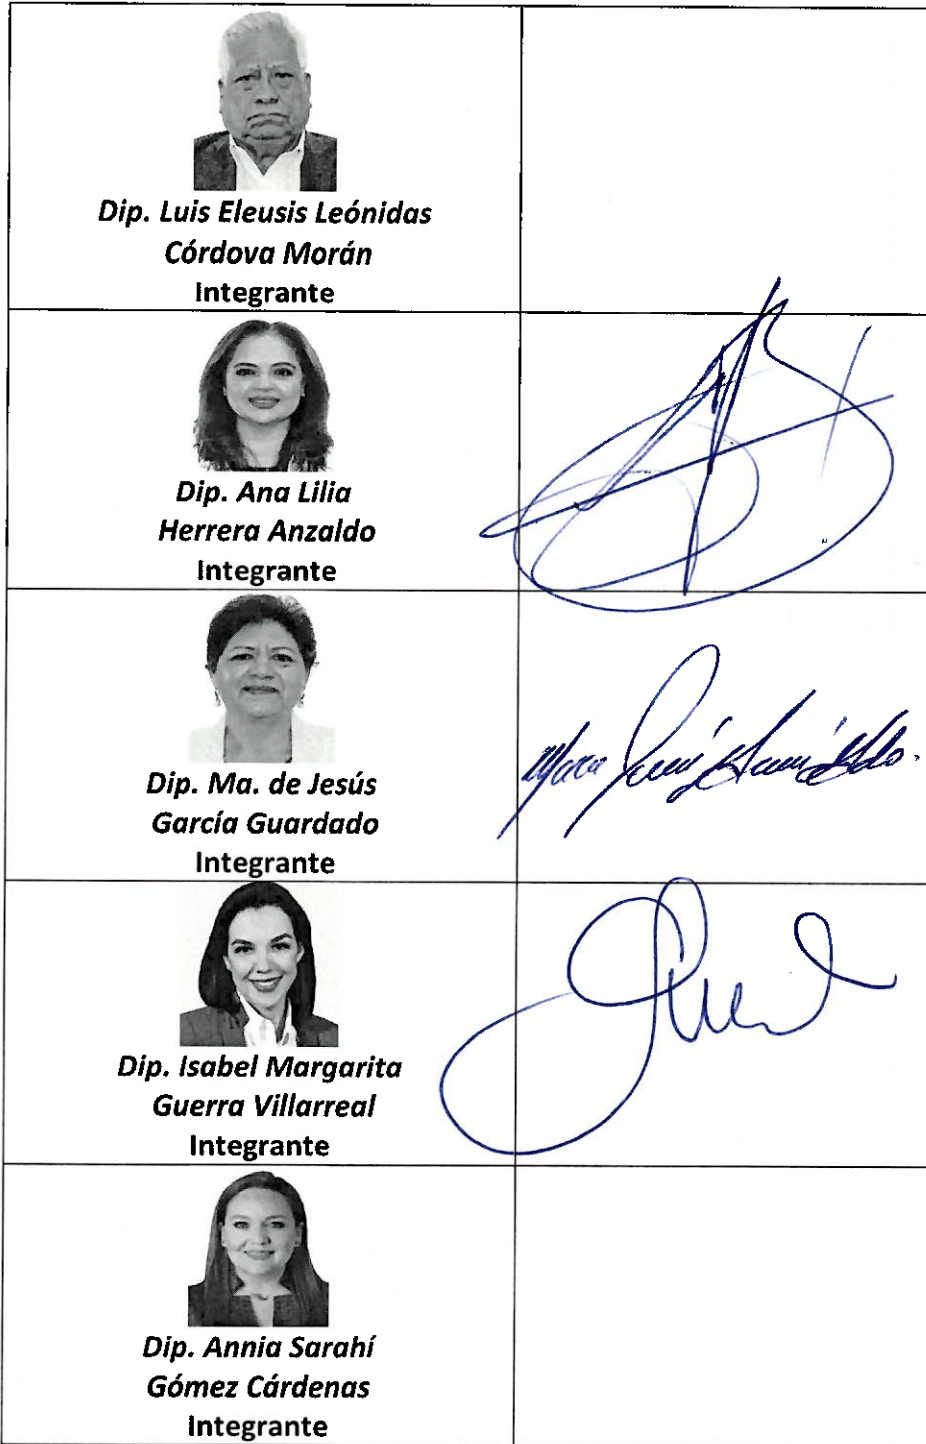 Dip. Luis Eleusis Leónidas
Córdova Morán
Integrante
Dip. Ana Lilia
Herrera Anzaldo
Integrante
Dip. Ma. de Jesús
García Guardado
Integrante
Dip. Isabel Margarita
Guerra Villarreal
Integrante
Dip. Annia Sarahí
Gómez Cárdenas
Integrante